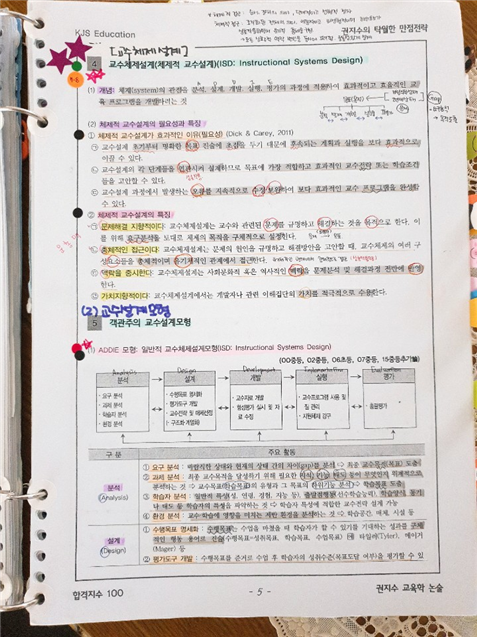 KJS Education
권지수의 탁월한 만점전략
[교수체제설계]
4 교수체제설계(체제적 교수설계)(ISD: Instructional Systems Design)
(1) 개념: 체제(system)의 관점을 분석, 설계, 개발, 실행, 평가의 과정에 적용하여 효과적이고 효율적인 교
육 프로그램을 개발하려는 것
(2) 체제적 교수설계의 필요성과 특징
① 체제적 교수설계가 효과적인 이유(필요성) (Dick & Carey, 2011)
㉠ 교수설계 초기부터 명확한 목표 진술에 초점을 두기 때문에 후속되는 계획과 실행을 보다 효과적으로
이끌 수 있다.
㉡ 교수설계의 각 단계들을 연관시켜 설계하므로 목표에 가장 적합하고 효과적인 교수전략 또는 학습조건
들을 고안할 수 있다.
㉢ 교수설계 과정에서 발생하는 문제를 지속적으로 수정 보완하여 보다 효과적인 교수 프로그램을 완성할
수 있다.
② 체제적 교수설계의 특징
㉠ 문제해결 지향적이다: 교수체제설계는 교수와 관련된 문제를 규명하고 해결하는 것을 목적으로 한다. 이
를 위해 요구분석을 토대로 체제의 목적을 구체적으로 설정한다.
㉡ 총체적인 접근이다: 교수체제설계는 문제의 원인을 규명하고 해결방안을 고안할 때, 교수체제의 여러 구
성요소들을 총체적이며 유기체적인 관계에서 접근한다.
㉢ 맥락을 중시한다: 교수체제설계는 사회문화적 혹은 역사적인 맥락을 문제분석 및 해결과정 전반에 반영
한다.
㉣ 가치지향적이다: 교수체제설계에서는 개발자나 관련 이해집단의 가치를 적극적으로 수용한다.
(2) 교수설계모형
5 객관주의 교수설계모형
(1) ADDIE 모형: 일반적 교수체제설계모형(ISD: Instructional Systems Design)
(00중등, 02중등, 06초등, 07중등, 15중등추가論)
Analysis Design Development Implementation Evaluation
분석 설계 개발 실행 평가
· 요구 분석
· 과제 분석
· 학습자 분석
· 환경 분석
· 수행목표 명세화
· 평가도구 개발
· 교수전략 및 매체선정
· 구조화 계열화
· 교수자료 개발
· 형성평가 실시 및 자료 수정
· 교수프로그램 사용 및 질 관리
· 지원체제 강구
· 총괄평가
구분 주요 활동
분석
(Analysis)
① 요구 분석: 바람직한 상태와 현재의 상태 간의 차이(gap)를 분석 ⇨ 최종 교수목적(목표) 도출
③ 학습자 분석: 일반적 특성
④ 환경 분석: 교수·학습에 영향을 미치는 제반 환경을 분석하는 것 ⇨ 학습공간, 매체, 시설 등
설계
(Design)
① 수행목표 명세화: 수행목표는 수업을 마쳤을 때 학습자가 할 수 있기를 기대하는 성과를 구체
적인 행동 용어로 진술
(Mager) 등
② 평가도구 개발: 수행목표를 준거로 수업 후 학습자의 성취수준(목표도달 여부)을 평가할 수 있
합격지수 100
- 5 -
권지수 교육학 논술